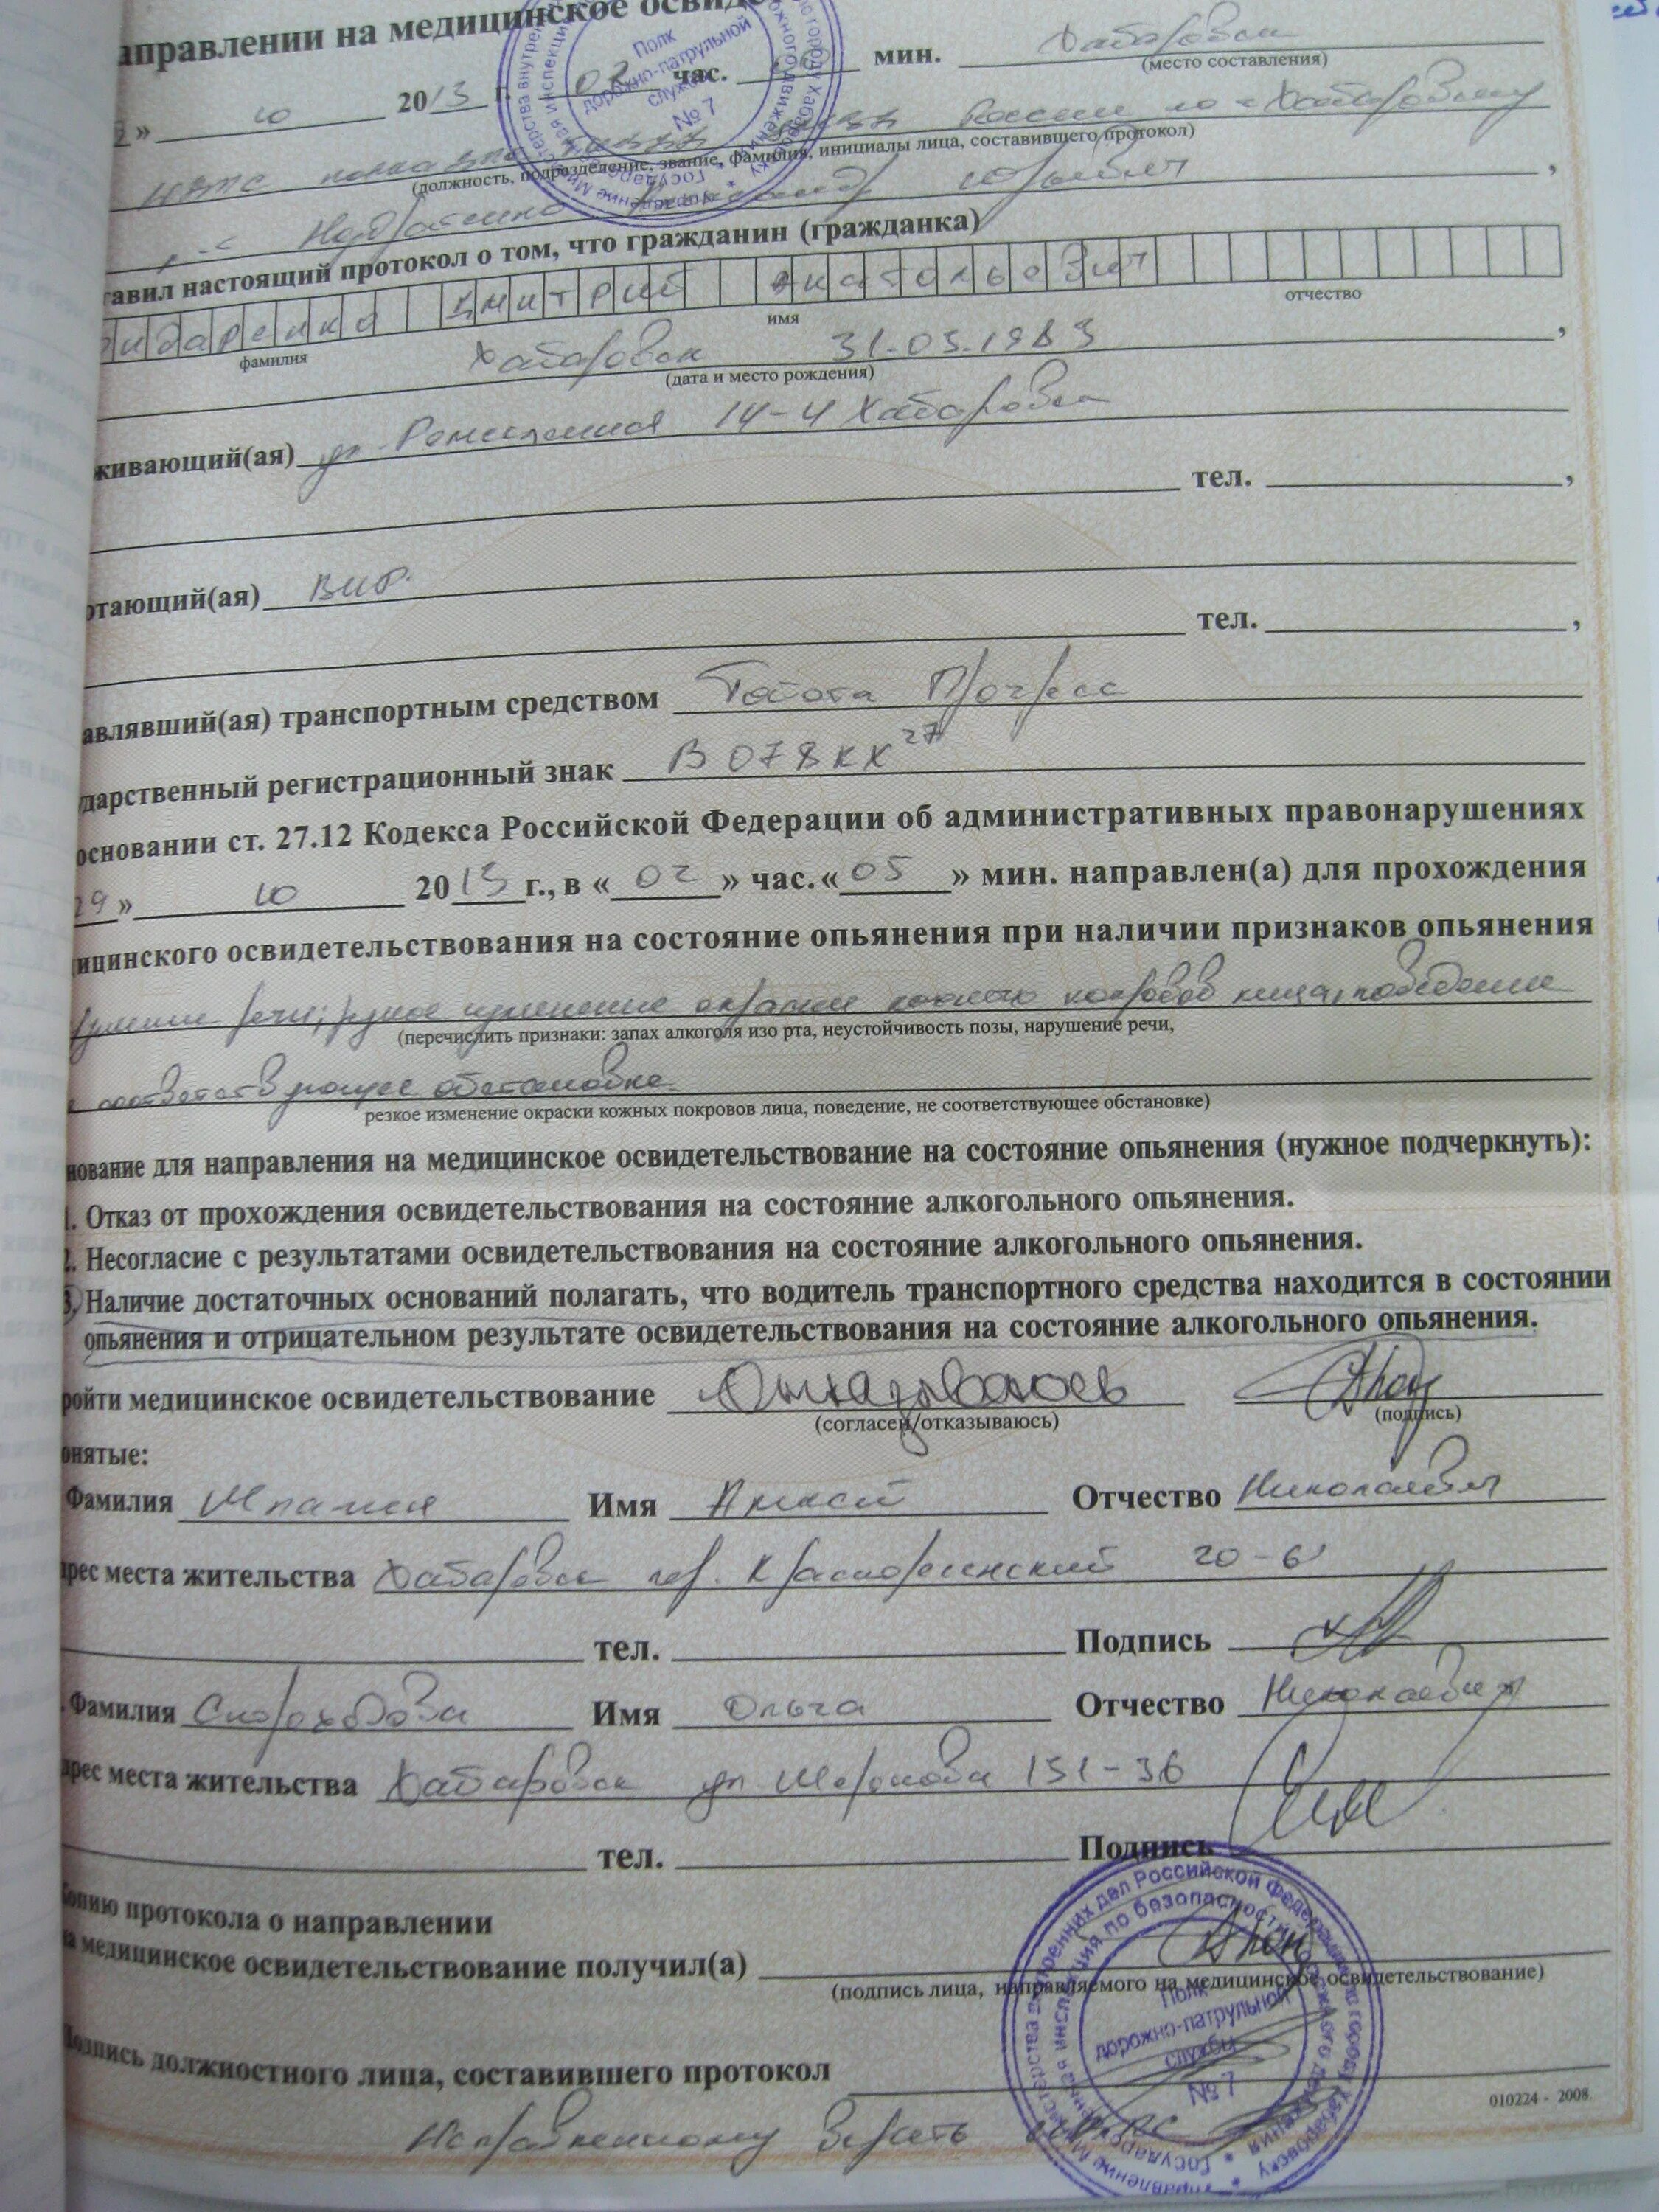 аправлении на медицинское освиде
2013 г. 02 час. мин. Хабаровск
(место составления)
» 10
ИДПС полка ДПС ГИБДД УМВД России по г. Хабаровску
(должность, подразделение, звание, фамилия, инициалы лица, составившего протокол)
тавил настоящий протокол о том, что гражданин (гражданка)
идаренко Дмитрий Анатольевич
фамилия имя отчество
Хабаровск 31.03.1983 ,
(дата и место рождения)
живающий(ая) ул. 14-4 Хабаровск
тел. ,
отающий(ая)
тел. ,
авлявший(ая) транспортным средством Тойота Прогресс
ударственный регистрационный знак В 078 КХ 27
основании ст. 27.12 Кодекса Российской Федерации об административных правонарушениях
29 » 10 2013 г., в « 02 » час. « 05 » мин. направлен(а) для прохождения
ицинского освидетельствования на состояние опьянения при наличии признаков опьянения
речи; резкое изменение окраски кожных покровов лица, поведение
(перечислить признаки: запах алкоголя изо рта, неустойчивость позы, нарушение речи,
соответствующее обстановке
резкое изменение окраски кожных покровов лица, поведение, не соответствующее обстановке)
нование для направления на медицинское освидетельствование на состояние опьянения (нужное подчеркнуть):
1. Отказ от прохождения освидетельствования на состояние алкогольного опьянения.
2. Несогласие с результатами освидетельствования на состояние алкогольного опьянения.
3. Наличие достаточных оснований полагать, что водитель транспортного средства находится в состоянии
опьянения и отрицательном результате освидетельствования на состояние алкогольного опьянения.
ройти медицинское освидетельствование Отказываюсь
(согласен/отказываюсь) (подпись)
онятые:
Фамилия Имя Алексей Отчество Николаевич
дрес места жительства Хабаровск пер. Краснореченский 20-61
тел. Подпись
. Фамилия Скороходова Имя Ольга Отчество
дрес места жительства Хабаровск ул. Шеронова 131-36
тел. Подпись
Копию протокола о направлении
на медицинское освидетельствование получил(а)
(подпись лица, направляемого на медицинское освидетельствование)
Подпись должностного лица, составившего протокол
010224 - 2008.
верить ИДПС
Полк
дорожно-патрульной
службы
№ 7
Полк
дорожно-патрульной
службы
№ 7